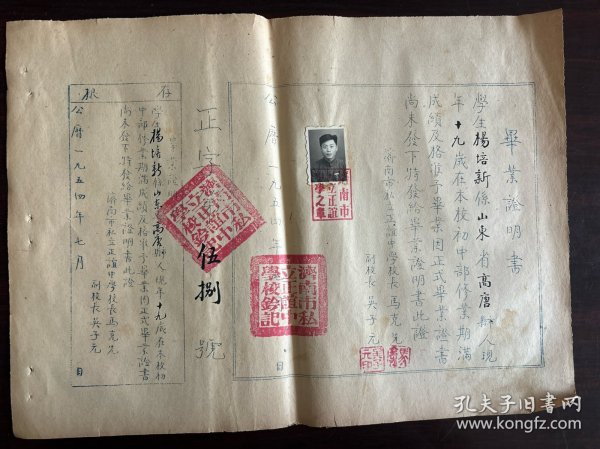 畢業證明書
學生楊培新係山東省高唐縣人現
年十九歲在本校初中部修業期滿
成績及格准予畢業因正式畢業證書
尚未發下特發給畢業證明書此證
濟南市私立正誼中學校長馬克先
副校長吳子元
公曆一九五四年
日
濟南市
立正誼
學之章
濟南市私
立正誼中
學校鈐記
正字
伍捌
號
濟南市私
立正誼中
學校鈐記
存根
學生楊培新係山東省高唐縣人現年十九歲在本校初
中部修業期滿成績及格准予畢業因正式畢業證書
尚未發下特發給畢業證明書此證
濟南市私立正誼中學校長馬克先
副校長吳子元
公曆一九五四年七月
日
孔夫子旧书网